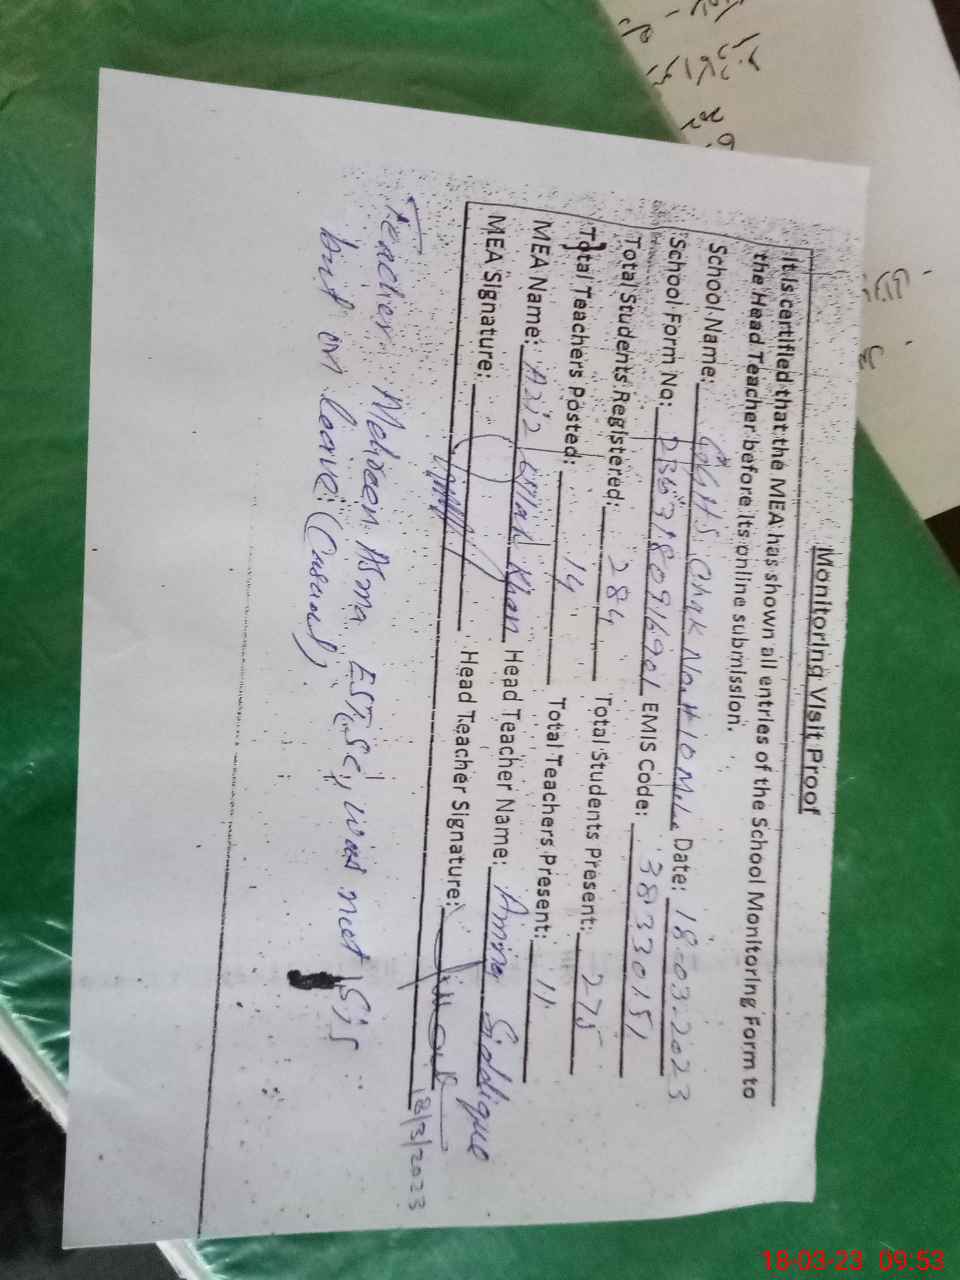 Monitoring Visit Proof
It is certified that the MEA has shown all entries of the School Monitoring Form to
the Head Teacher before its online submission.
School Name: Chak No. Date: 18-03-2023
School Form No: EMIS Code: 38330151
Total Students Registered: 284 Total Students Present: 275
Total Teachers Posted: 14 Total Teachers Present: 11
MEA Name: Khan Head Teacher Name: Amina Siddique
MEA Signature: Head Teacher Signature:
18/3/2023
Teacher Asma was not
but on leave
18-03-23 09:53